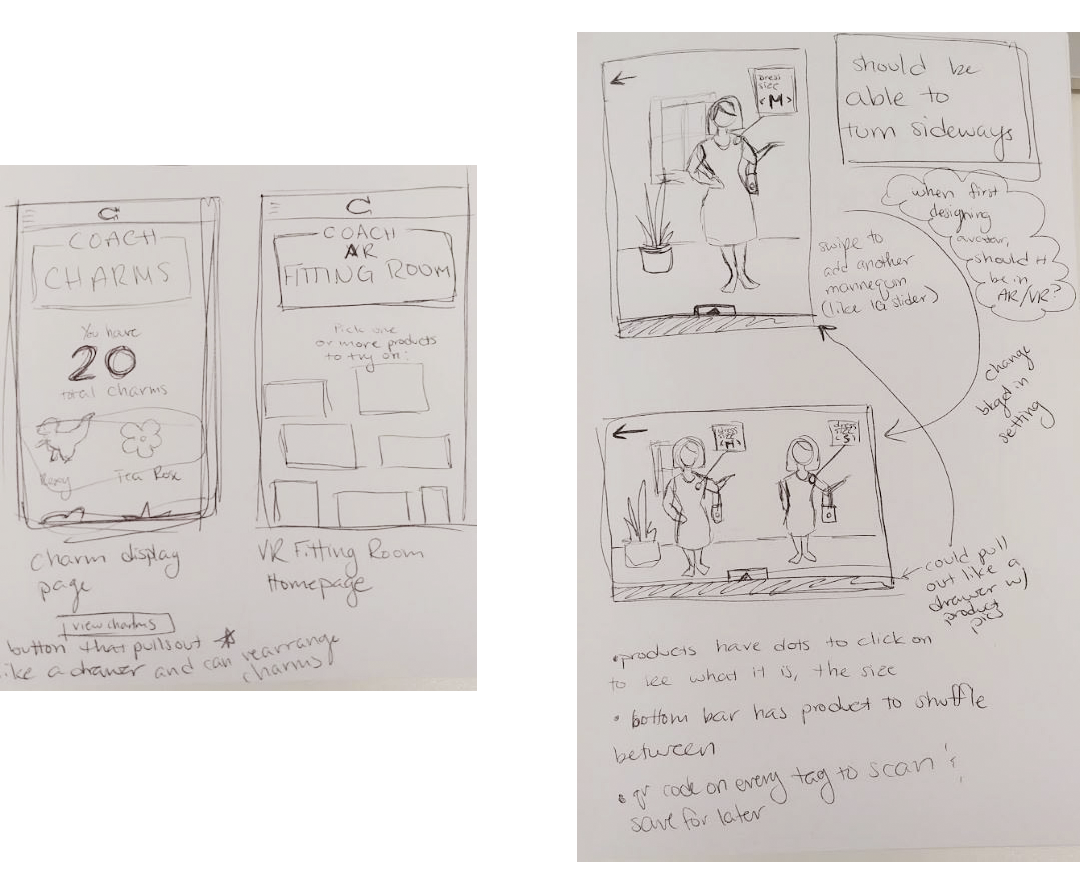 COACH
CHARMS
You have
20
total charms
Tea Rose
charm display
page
view charms
button that pulls out
like a drawer and can rearrange
charms
C
COACH
AR
FITTING ROOM
Pick one
or more products
to try on:
VR Fitting Room
Homepage
dress
size
<M>
should be
able to
turn sideways
when first
designing
avatar,
should it
be in
AR/VR?
swipe to
add another
mannequin
(like IG slider)
change
bkgd in
setting
dress
size
<M>
dress
size
<S>
could pull
out like a
drawer w/
product
pics
•products have dots to click on
to see what it is, the size
• bottom bar has product to shuffle
between
• qr code on every tag to scan &
save for later